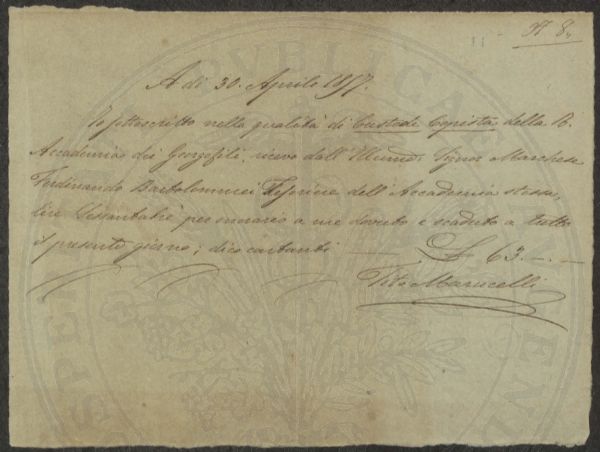 N 8,,
A dì 30. Aprile 1857.
Io sottoscritto nella qualità di Custode Copista della R.
Accademia dei Georgofili, ricevo dall' Signor Marchese
Ferdinando Bartolommei Tesoriere dell'Accademia stessa,
lire Sessantatrè per onorario a me dovuto e scaduto a tutto
il presente giorno; dico contanti £ 63.—.—
Tito Marucelli
PVBLICAE